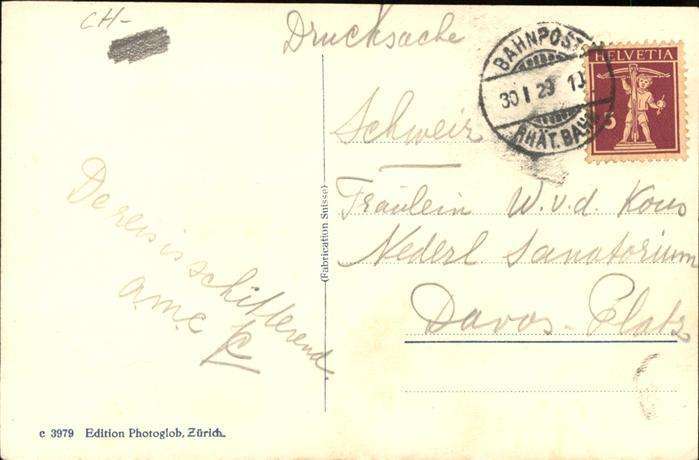 CH-
Drucksache
BAHNPOST
30 I 29 10
RHÄT. BAHN
HELVETIA
5
Schweiz
Fräulein W.v.d. Kous
Nederl Sanatorium
Davos-Platz
De reis is schitterend.
a.m.c
(Fabrication Suisse)
c 3979 Edition Photoglob, Zürich.